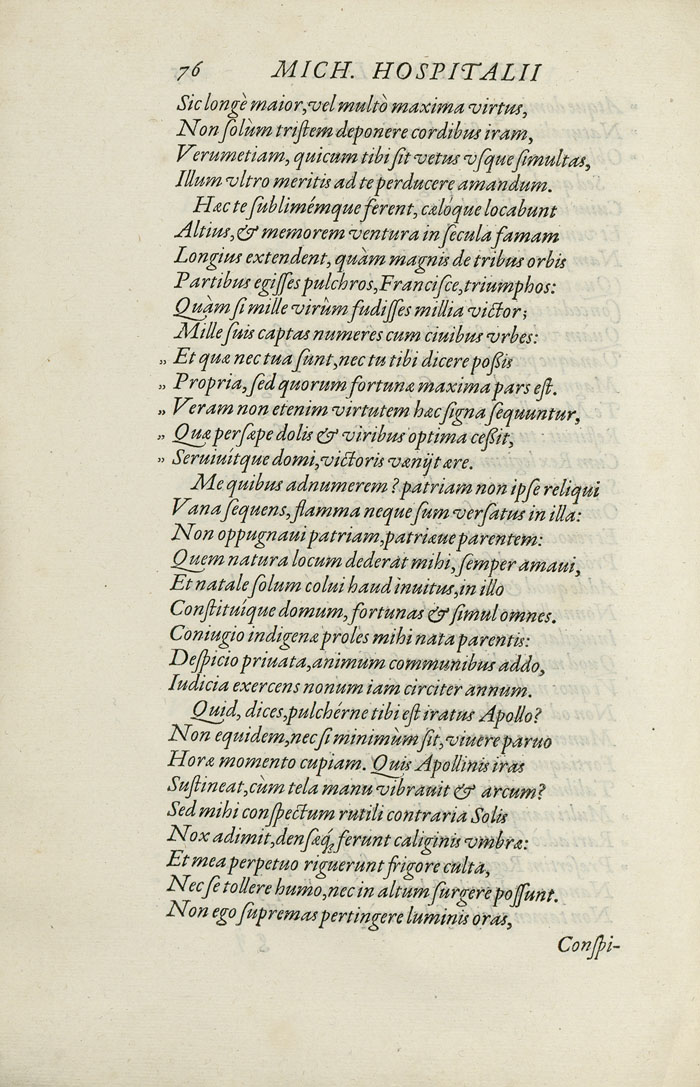 76 MICH. HOSPITALII
Sic longè maior, vel multò maxima virtus,
Non ſolùm triſtem deponere cordibus iram,
Verumetiam, quicum tibi ſit vetus vſque ſimultas,
Illum vltro meritis ad te perducere amandum.
Hæc te ſublimémque ferent, cælóque locabunt
Altius, & memorem ventura in ſecula famam
Longius extendent, quàm magnis de tribus orbis
Partibus egiſſes pulchros, Franciſce, triumphos:
Quàm ſi mille virùm fudiſſes millia victor;
Mille ſuis captas numeres cum ciuibus vrbes:
„ Et quæ nec tua ſunt, nec tu tibi dicere poßis
„ Propria, ſed quorum fortunæ maxima pars eſt.
„ Veram non etenim virtutem hæc ſigna ſequuntur,
„ Quæ perſæpe dolis & viribus optima ceßit,
„ Seruiuítque domi, victoris vænijt ære.
Me quibus adnumerem? patriam non ipſe reliqui
Vana ſequens, flamma neque ſum verſatus in illa:
Non oppugnaui patriam, patriæue parentem:
Quem natura locum dederat mihi, ſemper amaui,
Et natale ſolum colui haud inuitus, in illo
Conſtituíque domum, fortunas & ſimul omnes.
Coniugio indigenæ proles mihi nata parentis:
Deſpicio priuata, animum communibus addo,
Iudicia exercens nonum iam circiter annum.
Quid, dices, pulchérne tibi eſt iratus Apollo?
Non equidem, nec ſi minimùm ſit, viuere paruo
Horæ momento cupiam. Quis Apollinis iras
Suſtineat, cùm tela manu vibrauit & arcum?
Sed mihi conſpectum rutili contraria Solis
Nox adimit, denſæq́; ferunt caliginis vmbræ:
Et mea perpetuo riguerunt frigore culta,
Nec ſe tollere humo, nec in altum ſurgere poſſunt.
Non ego ſupremas pertingere luminis oras,
Conſpi-